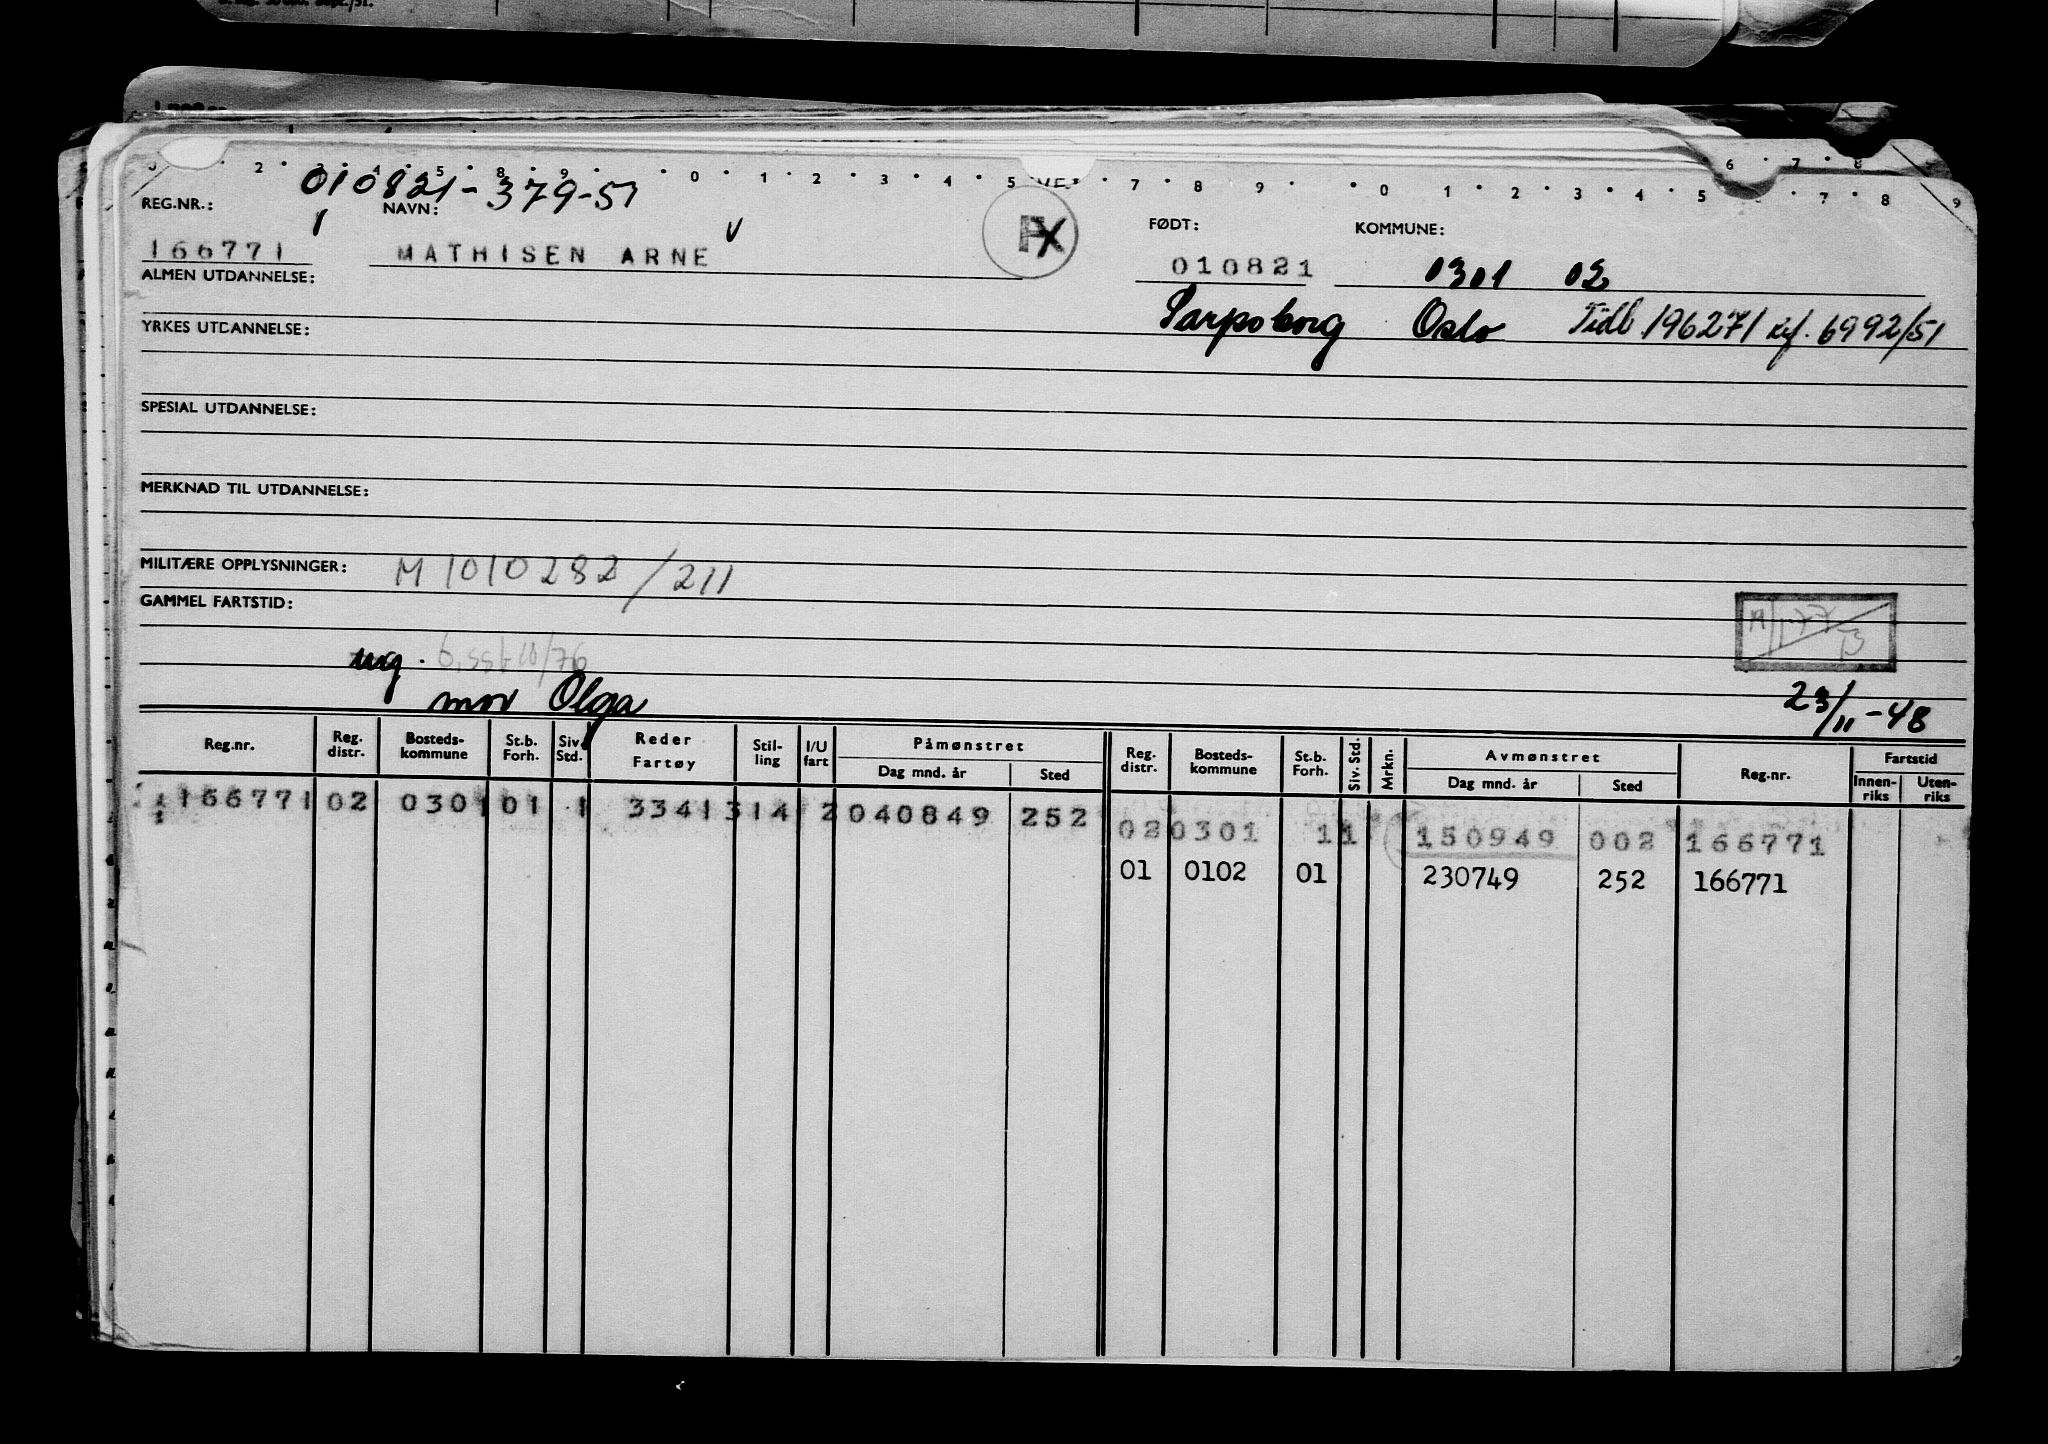 010821-379-51
REG.NR.: NAVN: FØDT: KOMMUNE:
166771 MATHISEN ARNE 010821 0301 02
ALMEN UTDANNELSE:
Sarpsborg Oslo Tidl 196271 kf. 6992/51
YRKES UTDANNELSE:
SPESIAL UTDANNELSE:
MERKNAD TIL UTDANNELSE:
MILITÆRE OPPLYSNINGER: M 1010282/211
GAMMEL FARTSTID:
ug.
mor Olga 23/11-48
Reg.nr. Reg. distr. Bosteds-kommune St.b. Forh. Siv. Std. Reder Fartøy Stil-ling I/U fart Påmønstret Dag mnd. år Sted Reg. distr. Bosteds-kommune St.b. Forh. Siv. Std. Mrkn. Avmønstret Dag mnd. år Sted Reg.nr. Fartstid Innen-riks Uten-riks
166771 02 0301 01 1 33413 14 2 040849 252 02 0301 1 1 150949 002 166771
01 0102 01 230749 252 166771